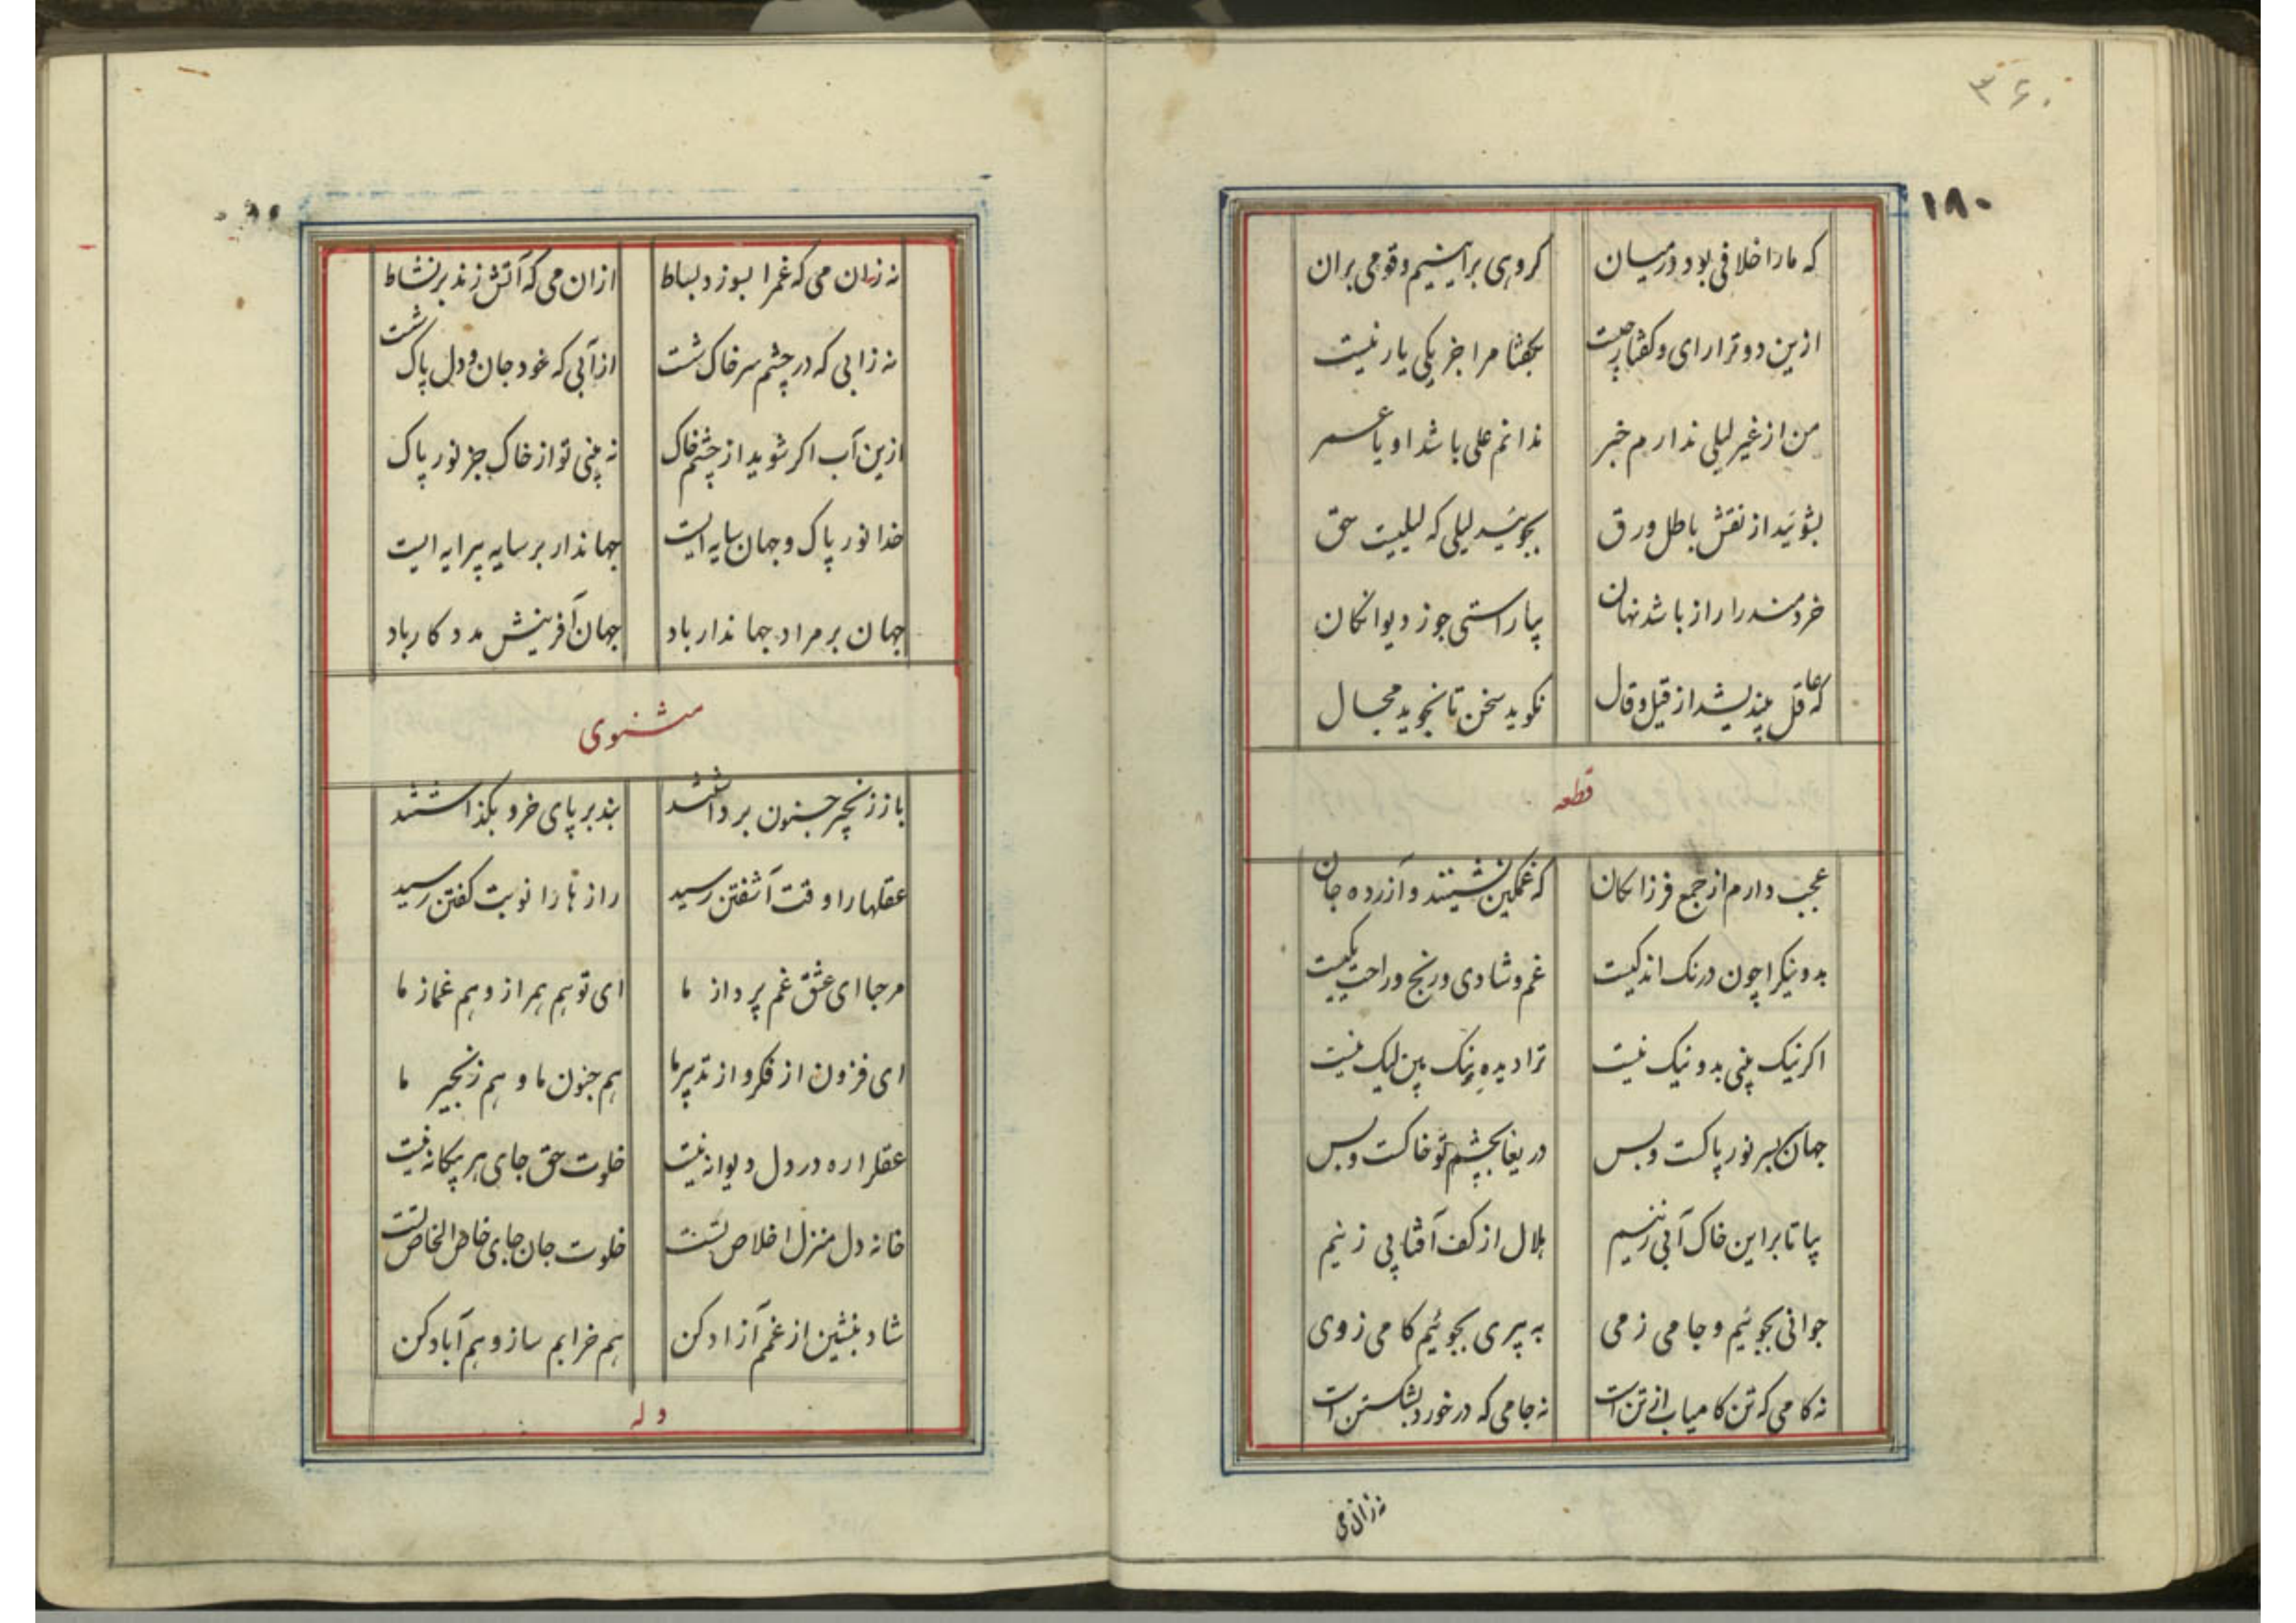 ۳۶۰
۱۸۰
که ما را خلافی بود در میان گروهی براینیم و قومی بران
ازین دو ترا رای و گفتار چیست بگفتا مرا خز یکی یار نیست
من از غیر لیلی ندارم خبر ندانم علی باشد او یا عمر
بشوئید از نقش باطل ورق بجوئید لیلی که لیلیست حق
خردمند را راز باشد نهان بیا راستی جو ز دیوانگان
که عاقل بیندیشد از قیل و قال نگوید سخن تا نجوید مجال
قطعه
عجب دارم از جمع فرزانگان که غمگین نشینند و آزرده جان
بد و نیک را چون درنگ اندکیست غم و شادی و رنج و راحت یکیست
اگر نیک بینی بد و نیک نیست ترا دیدهٔ نیک بین لیک نیست
جهان یکسر نور پاکست و بس دریغا بچشم تو خاکست و بس
بیا تا بر این خاک آبی زنیم هلال از کف آفتابی زنیم
جوانی بجوئیم و جامی ز می به پیری بجوئیم کامی ز وی
نه کامی که تن کامیاب از تن است نه جامی که در خورد بشکستن است
نه زان می
نه زان می که غم را بسوزد بساط ازان می که آتش زند بر نشاط
نه زابی که در چشم سر خاک شت از آبی که خود جان و دل پاک شت
ازین آب اگر شوید از چشم خاک نه بینی تو از خاک جز نور پاک
خدا نور پاک و جهان سایه ایست جهاندار بر سایه پیرایه ایست
جهان بر مراد جهاندار باد جهان آفرینش مددکار باد
مثنوی
باز زنجیر جنون برداشتند بند بر پای خرد بگذاشتند
عقلها را وقت آشفتن رسید رازها را نوبت گفتن رسید
مرحبا ای عشق غم پرداز ما ای تو هم همراز و هم غماز ما
ای فزون از فکر و از تدبیر ما هم جنون ما و هم زنجیر ما
عقل را ره در دل دیوانه نیست خلوت حق جای هر بیگانه نیست
خانه دل منزل اخلاص تست خلوت جان جای خاص الخاص تست
شاد بنشین از غمم آزاد کن هم خرابم ساز و هم آباد کن
وله